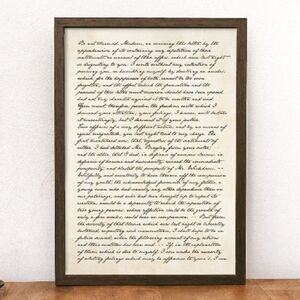 Be not alarmed, Madam, on receiving this letter, by the
apprehension of its containing any repetition of those
sentiments, or renewal of those offers, which were last night so
disgusting to you. I write without any intention of
paining you, or humbling myself, by dwelling on wishes,
which, for the happiness of both, cannot be too soon
forgotten; and the effort which the formation and the
perusal of this letter must occasion should have been spared,
had not my character required it to be written and read.
You must, therefore, pardon the freedom with which I
demand your attention; your feelings, I know, will bestow
it unwillingly, but I demand it of your justice.
Two offences of a very different nature, and by no means of
equal magnitude, you last night laid to my charge. The
first mentioned was, that, regardless of the sentiments of
either, I had detached Mr. Bingley from your sister, and
the other, that I had, in defiance of various claims, in
defiance of honour and humanity, ruined the immediate
prosperity, and blasted the prospects of Mr. Wickham. --
Wilfully and wantonly to have thrown off the companion
of my youth, the acknowledged favourite of my father, a
young man who had scarcely any other dependence than on
our patronage, and who had been brought up to expect its
exertion, would be a depravity to which the separation of
two young persons, whose affection could be the growth of
only a few weeks, could bear no comparison. -- But from
the severity of that blame which was last night so liberally
bestowed, respecting each circumstance, I shall hope to be in
future secured, when the following account of my actions
and their motives has been read. -- If, in the explanation
of them which is due to myself, I am under the necessity
of relating feelings which may be offensive to your's, I can